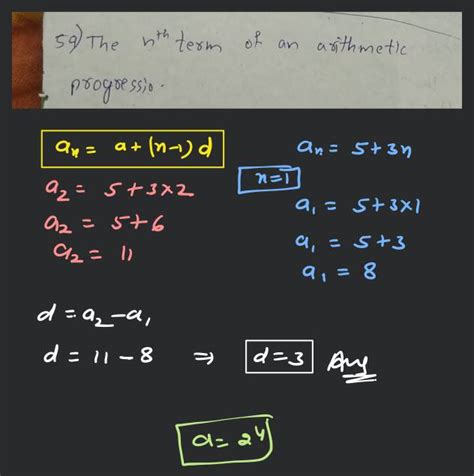 59) The nth term of an arithmetic
progressio.
aₙ = a + (n-1) d
a₂ = 5+3×2
a₂ = 5+6
a₂ = 11
aₙ = 5+3n
n=1
a₁ = 5+3×1
a₁ = 5+3
a₁ = 8
d = a₂-a₁
d = 11-8 ⇒ d=3 Ans
a = 2⁴